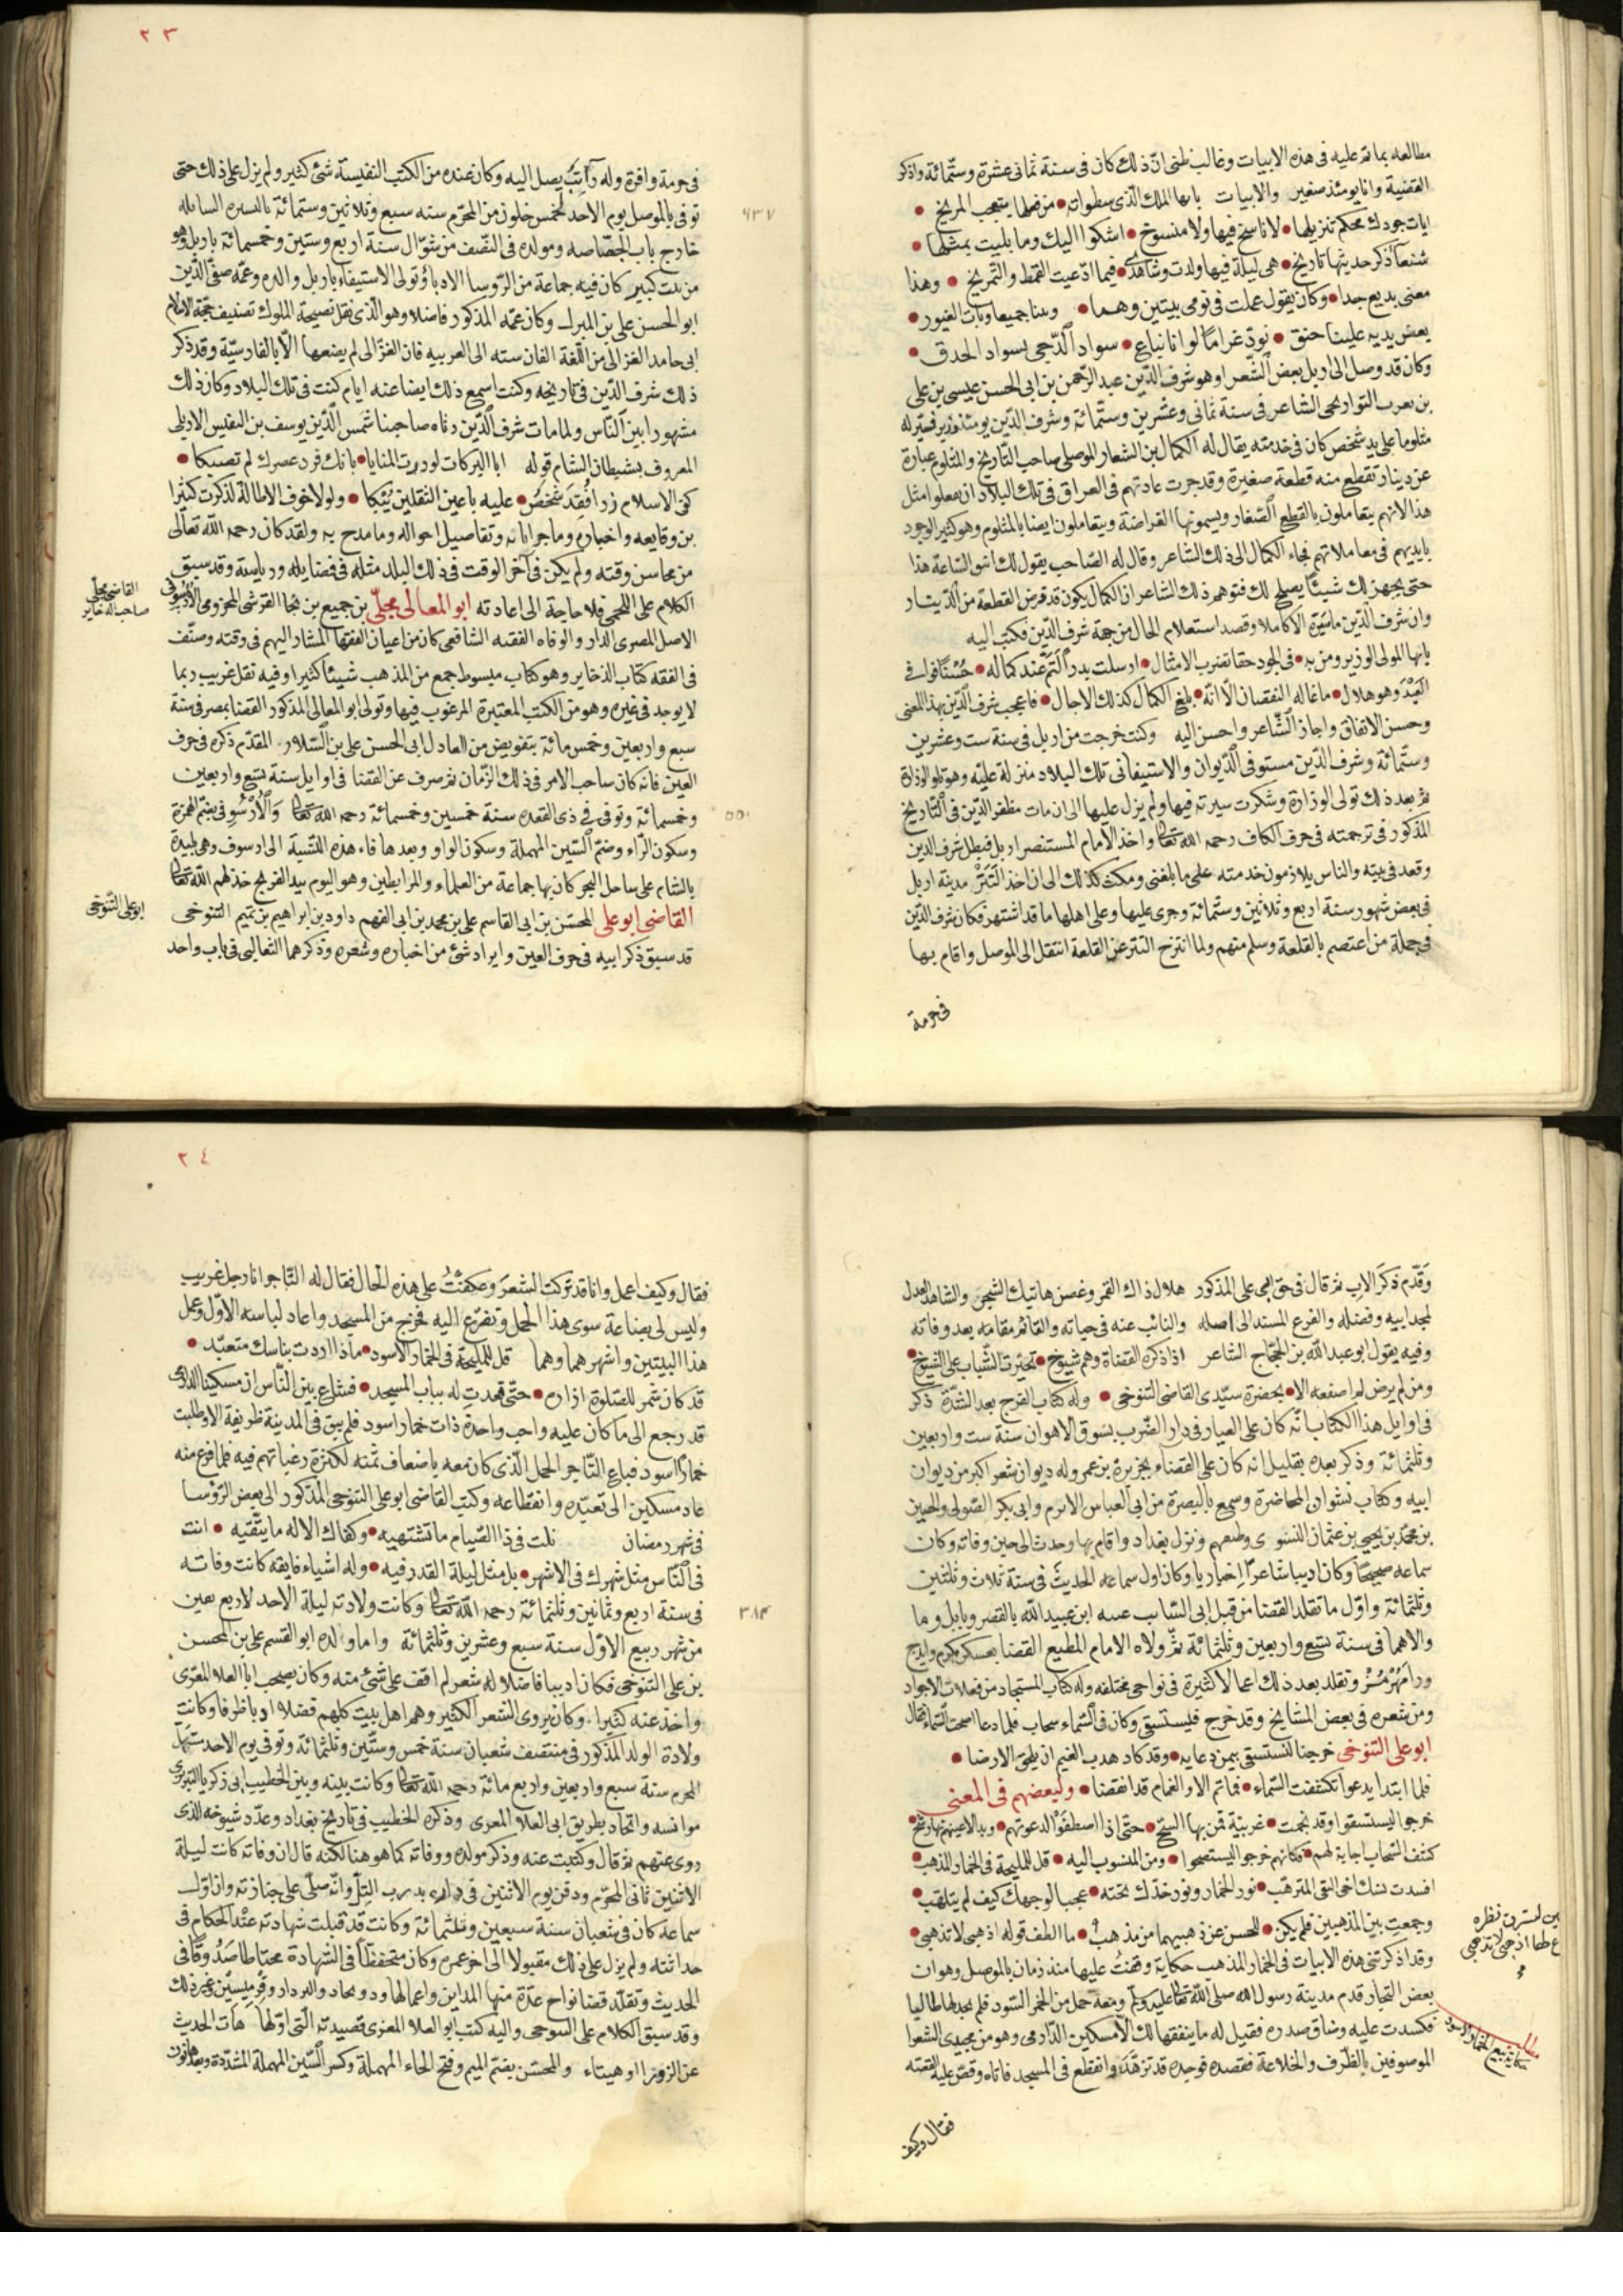 مطالعه بما تم عليه في هذه الابيات وغالب ظني ان ذلك كان في سنة ثماني عشرة وستمائة واذكر
القضية وانا يومئذ صغير والابيات يا ايها الملك الذي سطواته من فعلها يتعجب المريخ
ايات جودك محكم تنزيلها لا ناسخ فيها ولا منسوخ اشكوا اليك وما بليت بمثلها
شنعا ذكر حديثها تاريخ هي ليلة فيها ولدت وشاهدي فيما ادعيت القمط والتمريخ وهذا
معنى بديع جدا وكان يقول عملت في نومي بيتين وهما وبتنا جميعا وبات الغيور
يعض يديه علينا حنق نود غراما لو انا نباع سواد الدجى بسواد الحدق
وكان قد وصل الى اربل بعض الشعرا وهو شرف الدين عبد الرحمن بن ابي الحسن عيسى بن علي
بن يعرب البوازيجي الشاعر في سنة ثماني وعشرين وستمائة وشرف الدين يومئذ وزير فسير له
مثلوما على يد شخص كان في خدمته يقال له الكمال بن الشعار الموصلي صاحب التاريخ والمثلوم عبارة
عن دينار تقطع منه قطعة صغيرة وقد جرت عادتهم في العراق في تلك البلاد ان يفعلوا مثل
هذا لانهم يتعاملون بالقطع الصغار ويسمونها القراضة ويتعاملون ايضا بالمثلوم وهو كثير الوجود
بايديهم في معاملاتهم فجاء الكمال الى ذلك الشاعر وقال له الصاحب يقول لك انفق الساعة هذا
حتى يجهز لك شيئا يصلح لك فتوهم ذلك الشاعر ان الكمال يكون قد قرض القطعة من الدينار
وان شرف الدين ما سيره الا كاملا وقصد استعلام الحال من جهة شرف الدين فكتب اليه
يا ايها المولى الوزير ومن به في الجود حقا تضرب الامثال ارسلت بدر التم عند كماله حسنا فوافى
العبد وهو هلال ما غاله النقصان الا انه بلغ الكمال كذلك الاجال فاعجب شرف الدين بهذا المعنى
وحسن الاتفاق واجاز الشاعر واحسن اليه وكنت خرجت من اربل في سنة ست وعشرين
وستمائة وشرف الدين مستوفى الديوان والاستيفا في تلك البلاد منزلة عليه وهو تلو الوزارة
ثم بعد ذلك تولى الوزارة وشكرت سيرته فيها ولم يزل عليها الى ان مات مظفر الدين في التاريخ
المذكور في ترجمته في حرف الكاف رحمه الله تعالى واخذ الامام المستنصر اربل فبطل شرف الدين
وقعد في بيته والناس يلازمون خدمته على ما بلغني ومكث كذلك الى ان اخذ التتر مدينة اربل
في بعض شهور سنة اربع وثلاثين وستمائة وجرى عليها وعلى اهلها ما قد اشتهر فكان شرف الدين
في جملة من اعتصم بالقلعة وسلم منهم ولما انتزح التتر عن القلعة انتقل الى الموصل واقام بها
في حرمة
٢٣
في حرمة وافرة وله راتب يصل اليه وكان عنده من الكتب النفيسة شئ كثير ولم يزل على ذلك حتى
توفى بالموصل يوم الاحد لخمس خلون من المحرم سنه سبع وثلاثين وستمائة بالمقبره السابله
٦٣٧
خارج باب الجصاصه ومولده في النصف من شوال سنة اربع وستين وخمسمائة باربل وهو
من بيت كبير كان فيه جماعة من الروسا الادبا وتولى الاستيفاء باربل والده وعمه صفي الدين
ابو الحسن علي بن المبرك وكان عمه المذكور فاضلا وهو الذي نقل نصيحة الملوك تصنيف حجة الاسلام
ابي حامد الغزالي من اللغة الفارسيه الى العربيه فان الغزالي لم يضعها الا بالفارسية وقد ذكر
ذلك شرف الدين في تاريخه وكنت اسمع ذلك ايضا عنه ايام كنت في تلك البلاد وكان ذلك
مشهورا بين الناس ولما مات شرف الدين رثاه صاحبنا شمس الدين يوسف بن النفيس الاربلي
المعروف بشيطان الشام قوله ابا البركات لو درت المنايا بانك فرد عصرك لم تصبكا
كفى الاسلام رزا فقد شخص عليه باعين الثقلين يبكا ولولا خوف الاطالة لذكرت كثيرا
من وقايعه واخباره وماجراياته وتفاصيل احواله وما مدح به ولقد كان رحمه الله تعالى
من محاسن وقته ولم يكن في آخر الوقت في ذلك البلد مثله في فضايله ورياسته وقد سبق
الكلام على اللخمي فلا حاجة الى اعادته ابو المعالي مجلي بن جميع بن نجا القرشي المخزومي الارسوفي
القاضي مجلي
صاحب الذخاير
الاصل المصري الدار والوفاه الفقيه الشافعي كان من اعيان الفقها المشار اليهم في وقته وصنف
في الفقه كتاب الذخاير وهو كتاب مبسوط جمع من المذهب شيئا كثيرا وفيه نقل غريب ربما
لا يوجد في غيره وهو من الكتب المعتبرة المرغوب فيها وتولى ابو المعالي المذكور القضا بمصر في سنة
سبع واربعين وخمس مائة بتفويض من العادل ابي الحسن علي بن السلار المقدم ذكره في حرف
العين فانه كان صاحب الامر في ذلك الزمان ثم صرف عن القضا في اوايل سنة تسع واربعين
وخمسمائة وتوفى في ذي القعده سنة خمسين وخمسمائة رحمه الله تعالى والارسوفي بضم الهمزة
٥٥٠
وسكون الراء وضم السين المهملة وسكون الواو وبعدها فاء هذه النسبة الى ارسوف وهي بليدة
بالشام على ساحل البحر كان بها جماعة من العلماء والمرابطين وهو اليوم بيد الفرنج خذلهم الله تعالى
القاضي ابو علي المحسن بن ابي القاسم علي بن محمد بن ابي الفهم داود بن ابراهيم بن تميم التنوخي
ابو علي التنوخي
قد سبق ذكر ابيه في حرف العين وايراد شئ من اخباره وشعره وذكرهما الثعالبي في باب واحد
وقدم ذكر الاب ثم قال في حق ابي علي المذكور هلال ذاك القمر وغصن هاتيك الشجر والشاهد العدل
لمجد ابيه وفضله والفرع المسند الى اصله والنائب عنه في حياته والقائم مقامه بعد وفاته
وفيه يقول ابو عبد الله بن الحجاج الشاعر اذا ذكر القضاة وهم شيوخ تخيرت الشباب على الشيوخ
ومن لم يرض لم اصفعه الا بحضرة سيدي القاضي التنوخي وله كتاب الفرج بعد الشدة ذكر
في اوايل هذا الكتاب انه كان على العيار في دار الضرب بسوق الاهوان سنة ست واربعين
وثلثمائة وذكر بعده بقليل انه كان على القضاء بجزيرة بن عمر وله ديوان شعر اكبر من ديوان
ابيه وكتاب نشوان المحاضرة وسمع بالبصرة من ابي العباس الاثرم وابي بكر الصولي والحسين
بن محمد بن يحيى بن عثمان النسوى وطبقتهم ونزل بغداد واقام بها وحدث الى حين وفاته وكان
سماعه صحيحا وكان اديبا شاعرا اخباريا وكان اول سماعه الحديث في سنة ثلاث وثلثين
وثلثمائة واول ما تقلد القضا من قبل ابي السائب عتبه ابن عبيد الله بالقصر وبابل وما
والاهما في سنة تسع واربعين وثلثمائة ثم ولاه الامام المطيع القضا بعسكر مكرم وايدج
ورامهرمز وتقلد بعد ذلك اعمالا كثيرة في نواحي مختلفه وله كتاب المستجاد من فعلات الاجواد
ومن شعره في بعض المشايخ وقد خرج فليستسقي وكان في السماء سحاب فلما دعا اصحت السماء فقال
ابو علي التنوخي خرجنا لنستسقي بيمن دعايه وقد كاد هدب الغيم ان يلحق الارضا
فلما ابتدا يدعوا تكشفت السماء فما تم الا والغمام قد انقضا ولبعضهم في المعنى
خرجوا ليستسقوا وقد نجمت غربية قمن بها السح حتى اذا اصطفوا لدعوتهم وبدا لاعينهم بها رشح
كشف السحاب اجابة لهم فكانهم خرجوا ليستصحوا ومن المنسوب اليه قل للمليحة في الخمار المذهب
افسدت نسك اخى التقى المترهب نور الخمار ونور خدك تحته عجبا لوجهك كيف لم يتلهب
وجمعت بين المذهبين فلم يكن للحسن عن ذهبيهما من مذهب ما الطف قوله اذهبي لا تذهبي
لتسرق نظره
اذهبي لا تذهبي
وقد اذكرتني هذه الابيات في الخمار المذهب حكاية وقفت عليها منذ زمان بالموصل وهو ان
بعض التجار قدم مدينة رسول الله صلى الله تعالى عليه وسلم ومعه حمل من الخمر السود فلم يجد لها طالبا
فكسدت عليه وضاق صدره فقيل له ما ينفقها لك الا مسكين الدارمي وهو من مجيدي الشعرا
الموصوفين بالظرف والخلاعة فقصده فوجده قد تزهد وانقطع في المسجد فاتاه وقص عليه القصه
فقال وكيف
٢٤
فقال وكيف اعمل وانا قد تركت الشعر وعكفت على هذه الحال فقال له التاجر انا رجل غريب
وليس لي بضاعة سوى هذا الحمل وتضرع اليه فخرج من المسجد واعاد لباسه الاول وعمل
هذا البيتين واشهرهما وهما قل للمليحة في الخمار الاسود ماذا اردت بناسك متعبد
قد كان شمر للصلوة ازاره حتى قعدت له بباب المسجد فشاع بين الناس ان مسكينا الدارمي
قد رجع الى ما كان عليه واحب واحدة ذات خمار اسود فلم يبق في المدينة ظريفة الا وطلبت
خمارا اسود فباع التاجر الحمل الذي كان معه باضعاف ثمنه لكثرة رغباتهم فيه فلما فرغ منه
عاد مسكين الى تعبده وانقطاعه وكتب القاضي ابو علي التنوخي المذكور الى بعض الرؤسا
في شهر رمضان نلت في ذا الصيام ما تشتهيه وكفاك الاله ما يتقيه انت
في الناس مثل شهرك في الاشهر بل مثل ليلة القدر فيه وله اشياء فايقه كانت وفاته
في سنة اربع وثمانين وثلثمائة رحمه الله تعالى وكانت ولادته ليلة الاحد لاربع بقين
٣٨٤
من شهر ربيع الاول سنة سبع وعشرين وثلثمائة واما ولده ابو القسم علي بن المحسن
بن علي التنوخي فكان اديبا فاضلا له شعر لم اقف على شئ منه وكان يصحب ابا العلا المعرى
واخذ عنه كثيرا وكان يروى الشعر الكثير وهم اهل بيت كلهم فضلا ادبا ظرفا وكانت
ولادة الولد المذكور في منتصف شعبان سنة خمس وستين وثلثمائة وتوفى يوم الاحد مستهل
المحرم سنة سبع واربعين واربع مائة رحمه الله تعالى وكانت بينه وبين الخطيب ابي زكريا التبريزي
موانسه واتحاد بطريق ابي العلا المعرى وذكره الخطيب في تاريخ بغداد وعدد شيوخه الذي
روى عنهم ثم قال وكتبت عنه وذكر مولده ووفاته كما هو هنا لكنه قال ان وفاته كانت ليلة
الاثنين ثاني المحرم ودفن يوم الاثنين في داره بدرب التل وانه صلى على جنازته وان اول
سماعه كان في شعبان سنة سبعين وثلثمائة وكانت قد قبلت شهادته عند الحكام في
حداثته ولم يزل على ذلك مقبولا الى اخر عمره وكان متحفظا في الشهادة محتاطا صدوقا في
الحديث وتقلد قضا نواح عدة منها المداين واعمالها ودرنجاد والبردان وقرميسين وغير ذلك
وقد سبق الكلام على التنوخي واليه كتب ابو العلا المعرى قصيدته التي اولها هات الحديث
عن الزورا او هيتاء والمحسن بضم الميم وفتح الحاء المهملة وكسر السين المهملة المشددة وبعدها نون